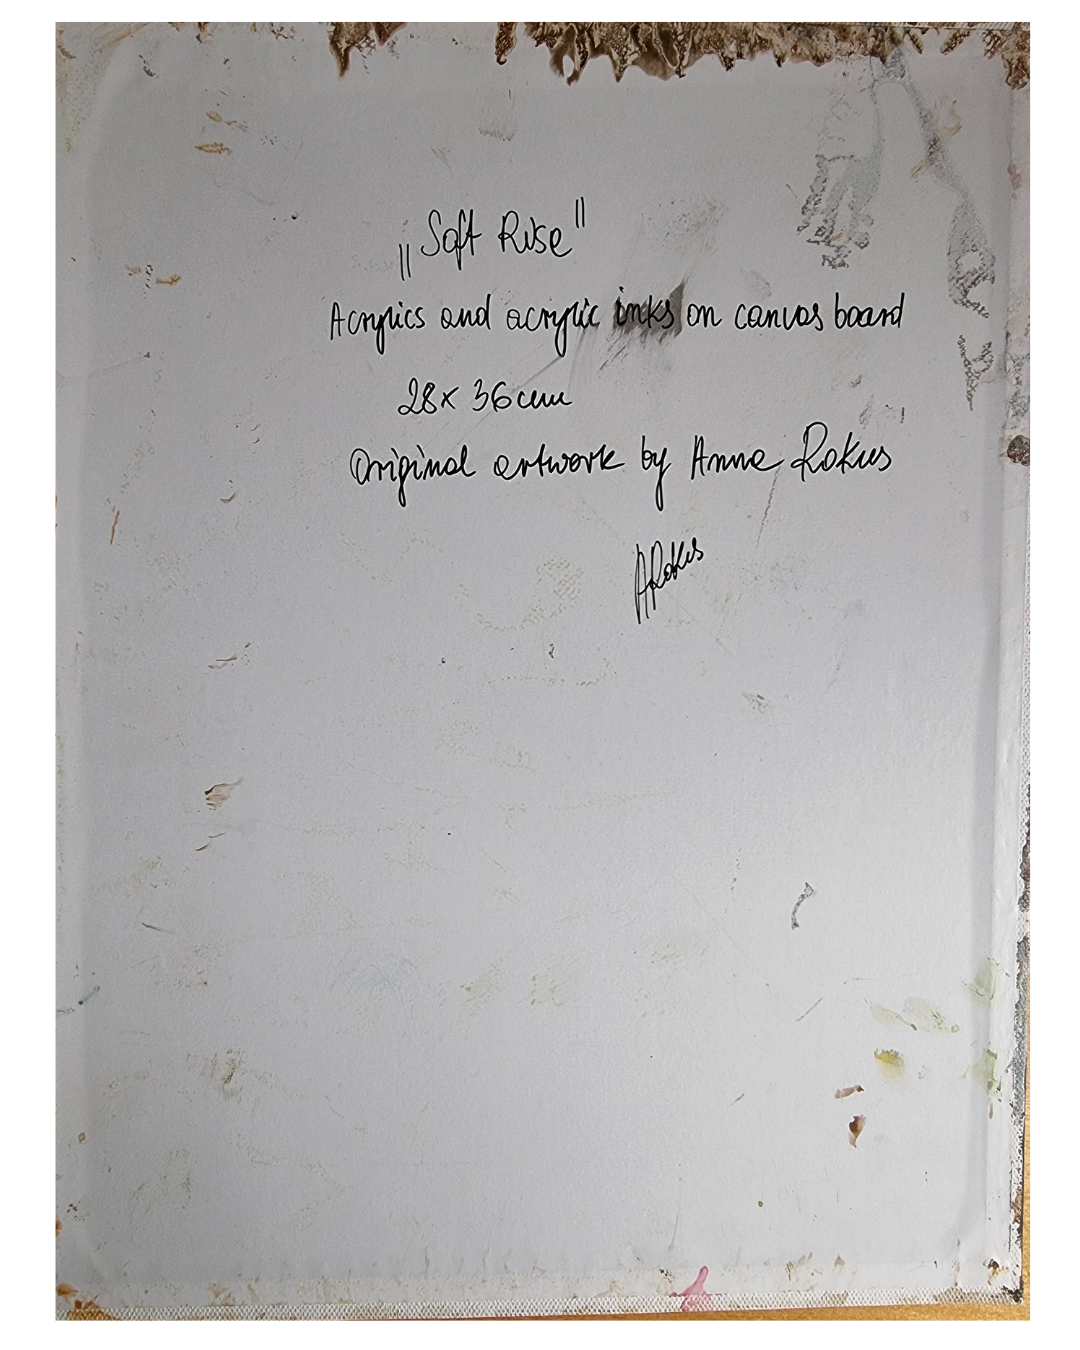 „Soft Rise"
Acrylics and acrylic inks on canvas board
28x 36cm
Original artwork by Anna Rokus
ARokus